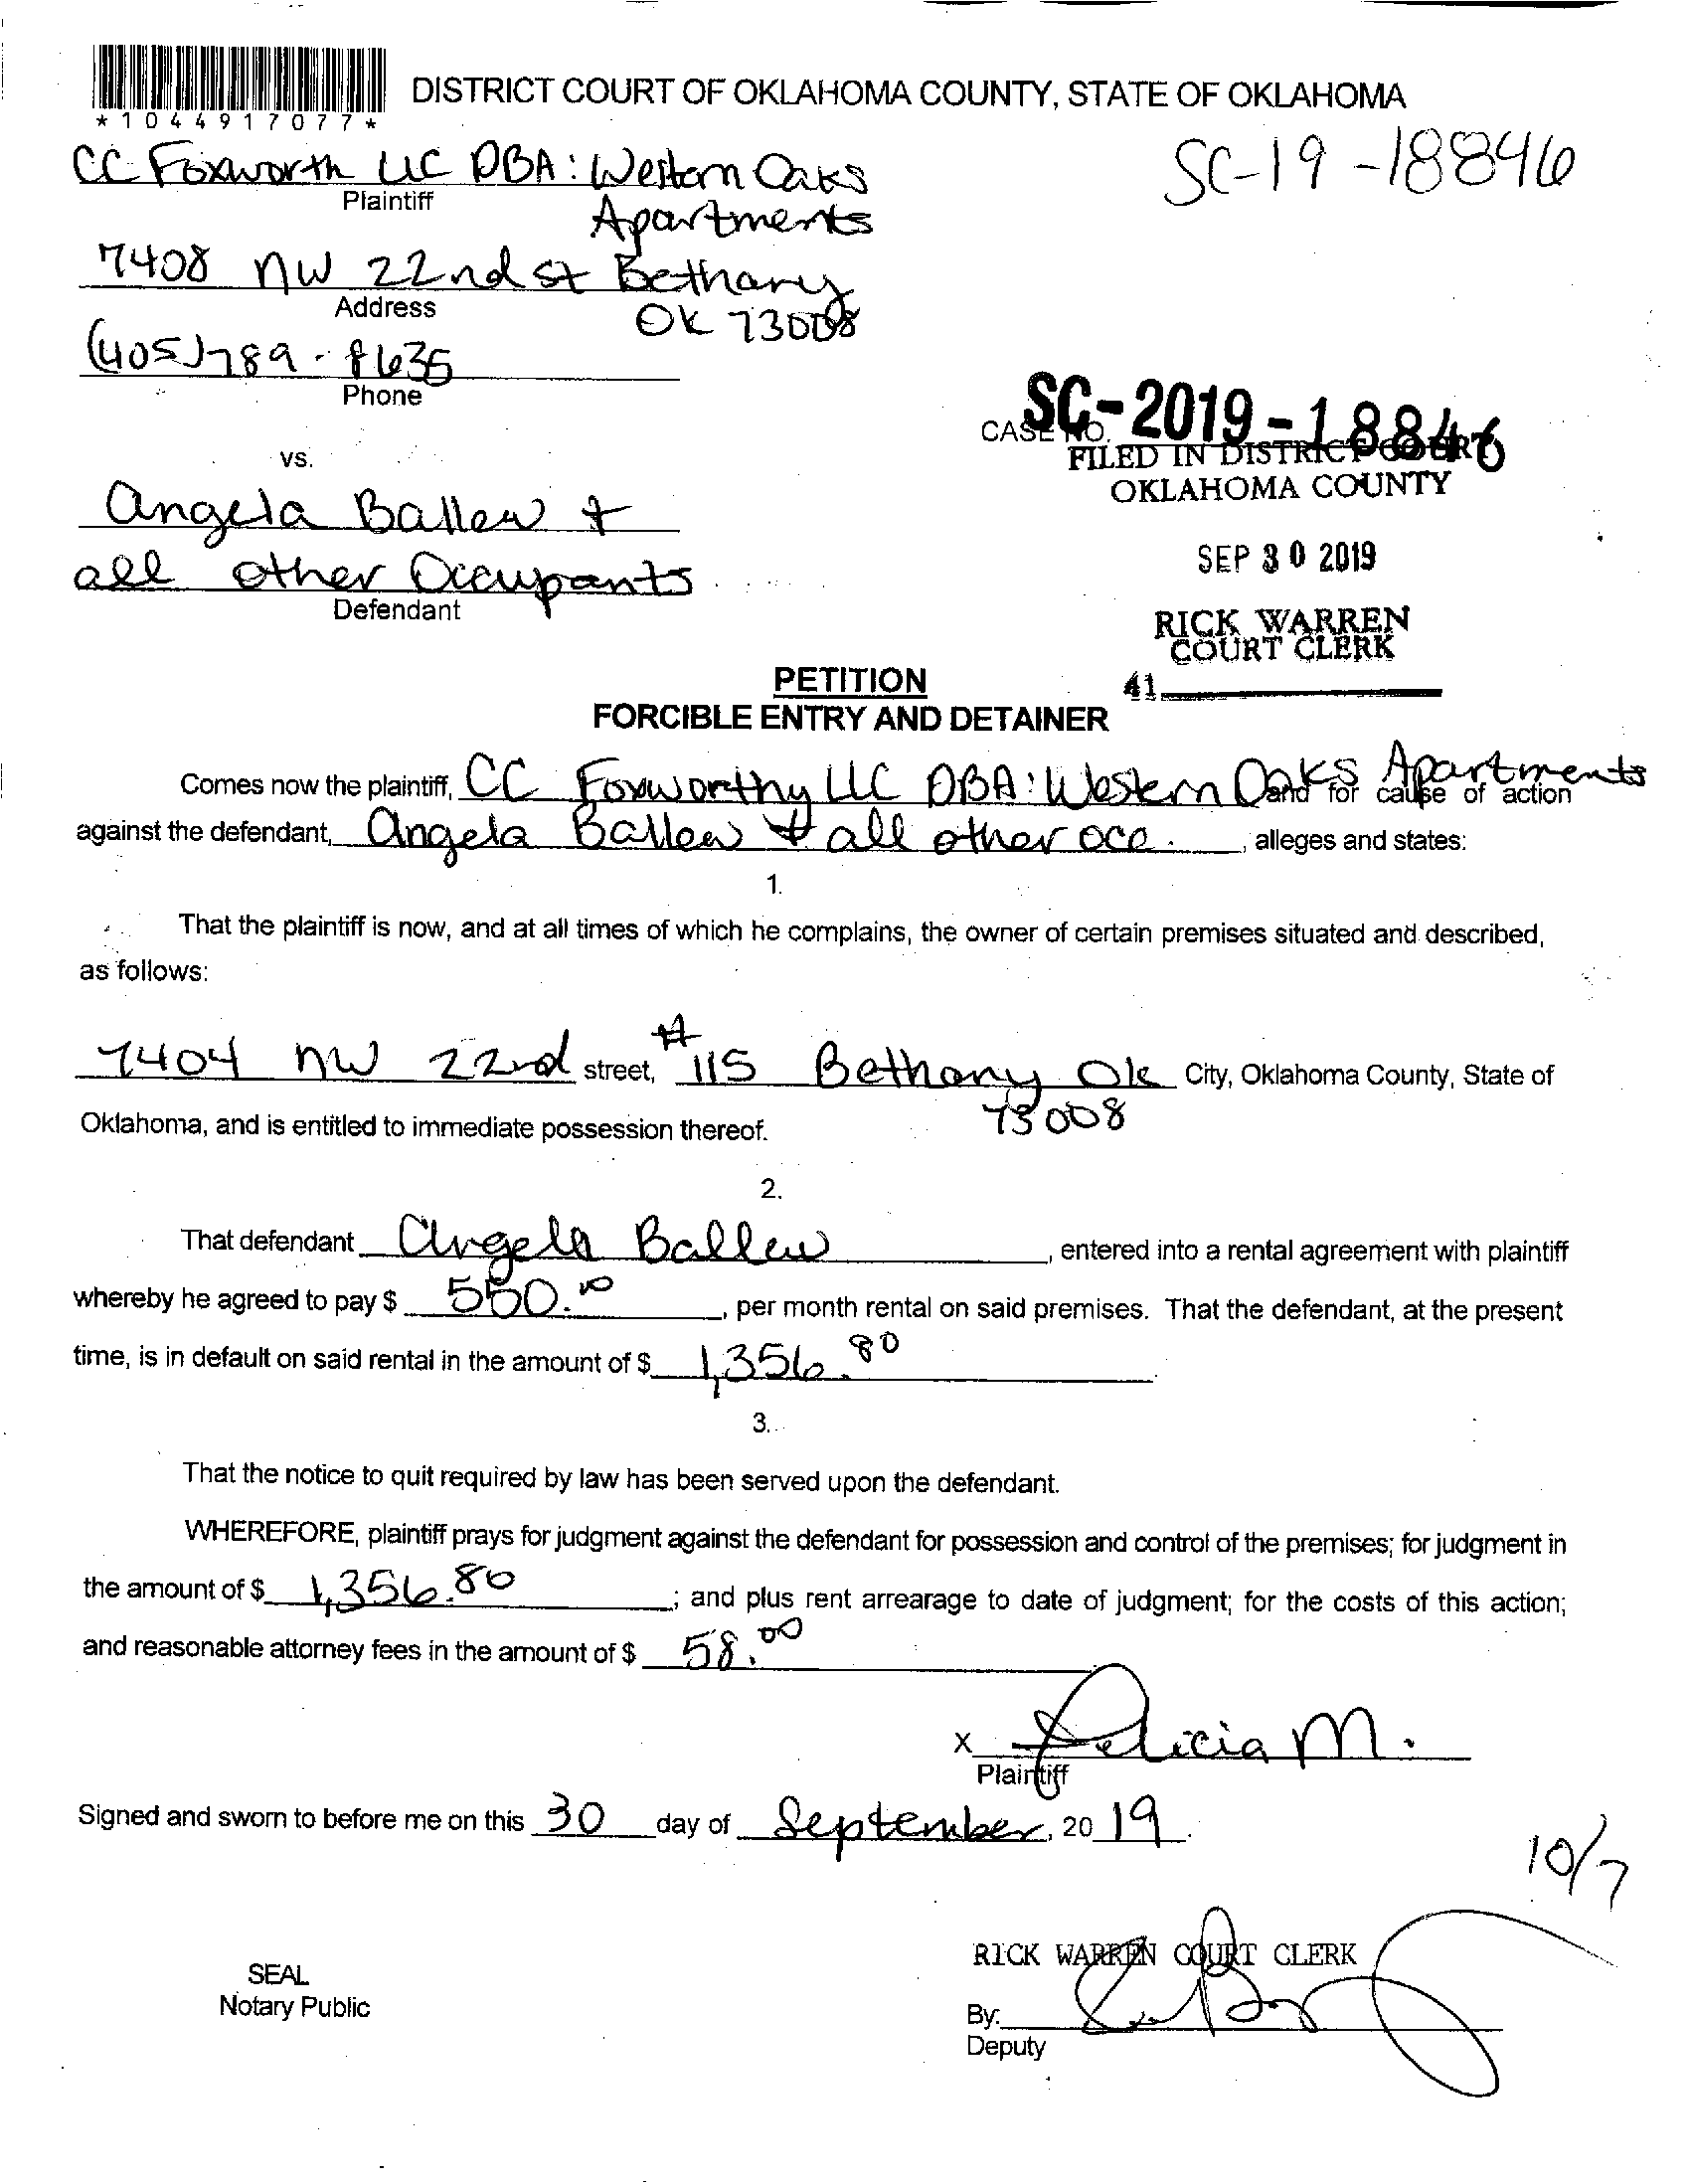 *1044917077*
DISTRICT COURT OF OKLAHOMA COUNTY, STATE OF OKLAHOMA
CC Foxworth LLC DBA: Western Oaks
Apartments
Plaintiff
SC-19-18846
7408 NW 22nd St Bethany
OK 73008
Address
(405)789-8635
Phone
CASE NO. SC-2019-18846
FILED IN DISTRICT COURT
OKLAHOMA COUNTY
vs.
Angela Ballew +
all other Occupants
Defendant
SEP 30 2019
RICK WARREN
COURT CLERK
41
PETITION
FORCIBLE ENTRY AND DETAINER
Comes now the plaintiff, CC Foxworthy LLC DBA: Western Oaks Apartments and for cause of action
against the defendant, Angela Ballew + all other occ. , alleges and states:
1.
That the plaintiff is now, and at all times of which he complains, the owner of certain premises situated and described,
as follows:
7404 NW 22nd street, #115 Bethany Ok City, Oklahoma County, State of
73008
Oklahoma, and is entitled to immediate possession thereof.
2.
That defendant Angela Ballew , entered into a rental agreement with plaintiff
whereby he agreed to pay $ 550.00 , per month rental on said premises. That the defendant, at the present
time, is in default on said rental in the amount of $ 1,356.80 .
3.
That the notice to quit required by law has been served upon the defendant.
WHEREFORE, plaintiff prays for judgment against the defendant for possession and control of the premises; for judgment in
the amount of $ 1,356.80 ; and plus rent arrearage to date of judgment; for the costs of this action;
and reasonable attorney fees in the amount of $ 58.00
X Felicia M.
Plaintiff
Signed and sworn to before me on this 30 day of September, 2019.
10/7
RICK WARREN COURT CLERK
SEAL
Notary Public
By:
Deputy